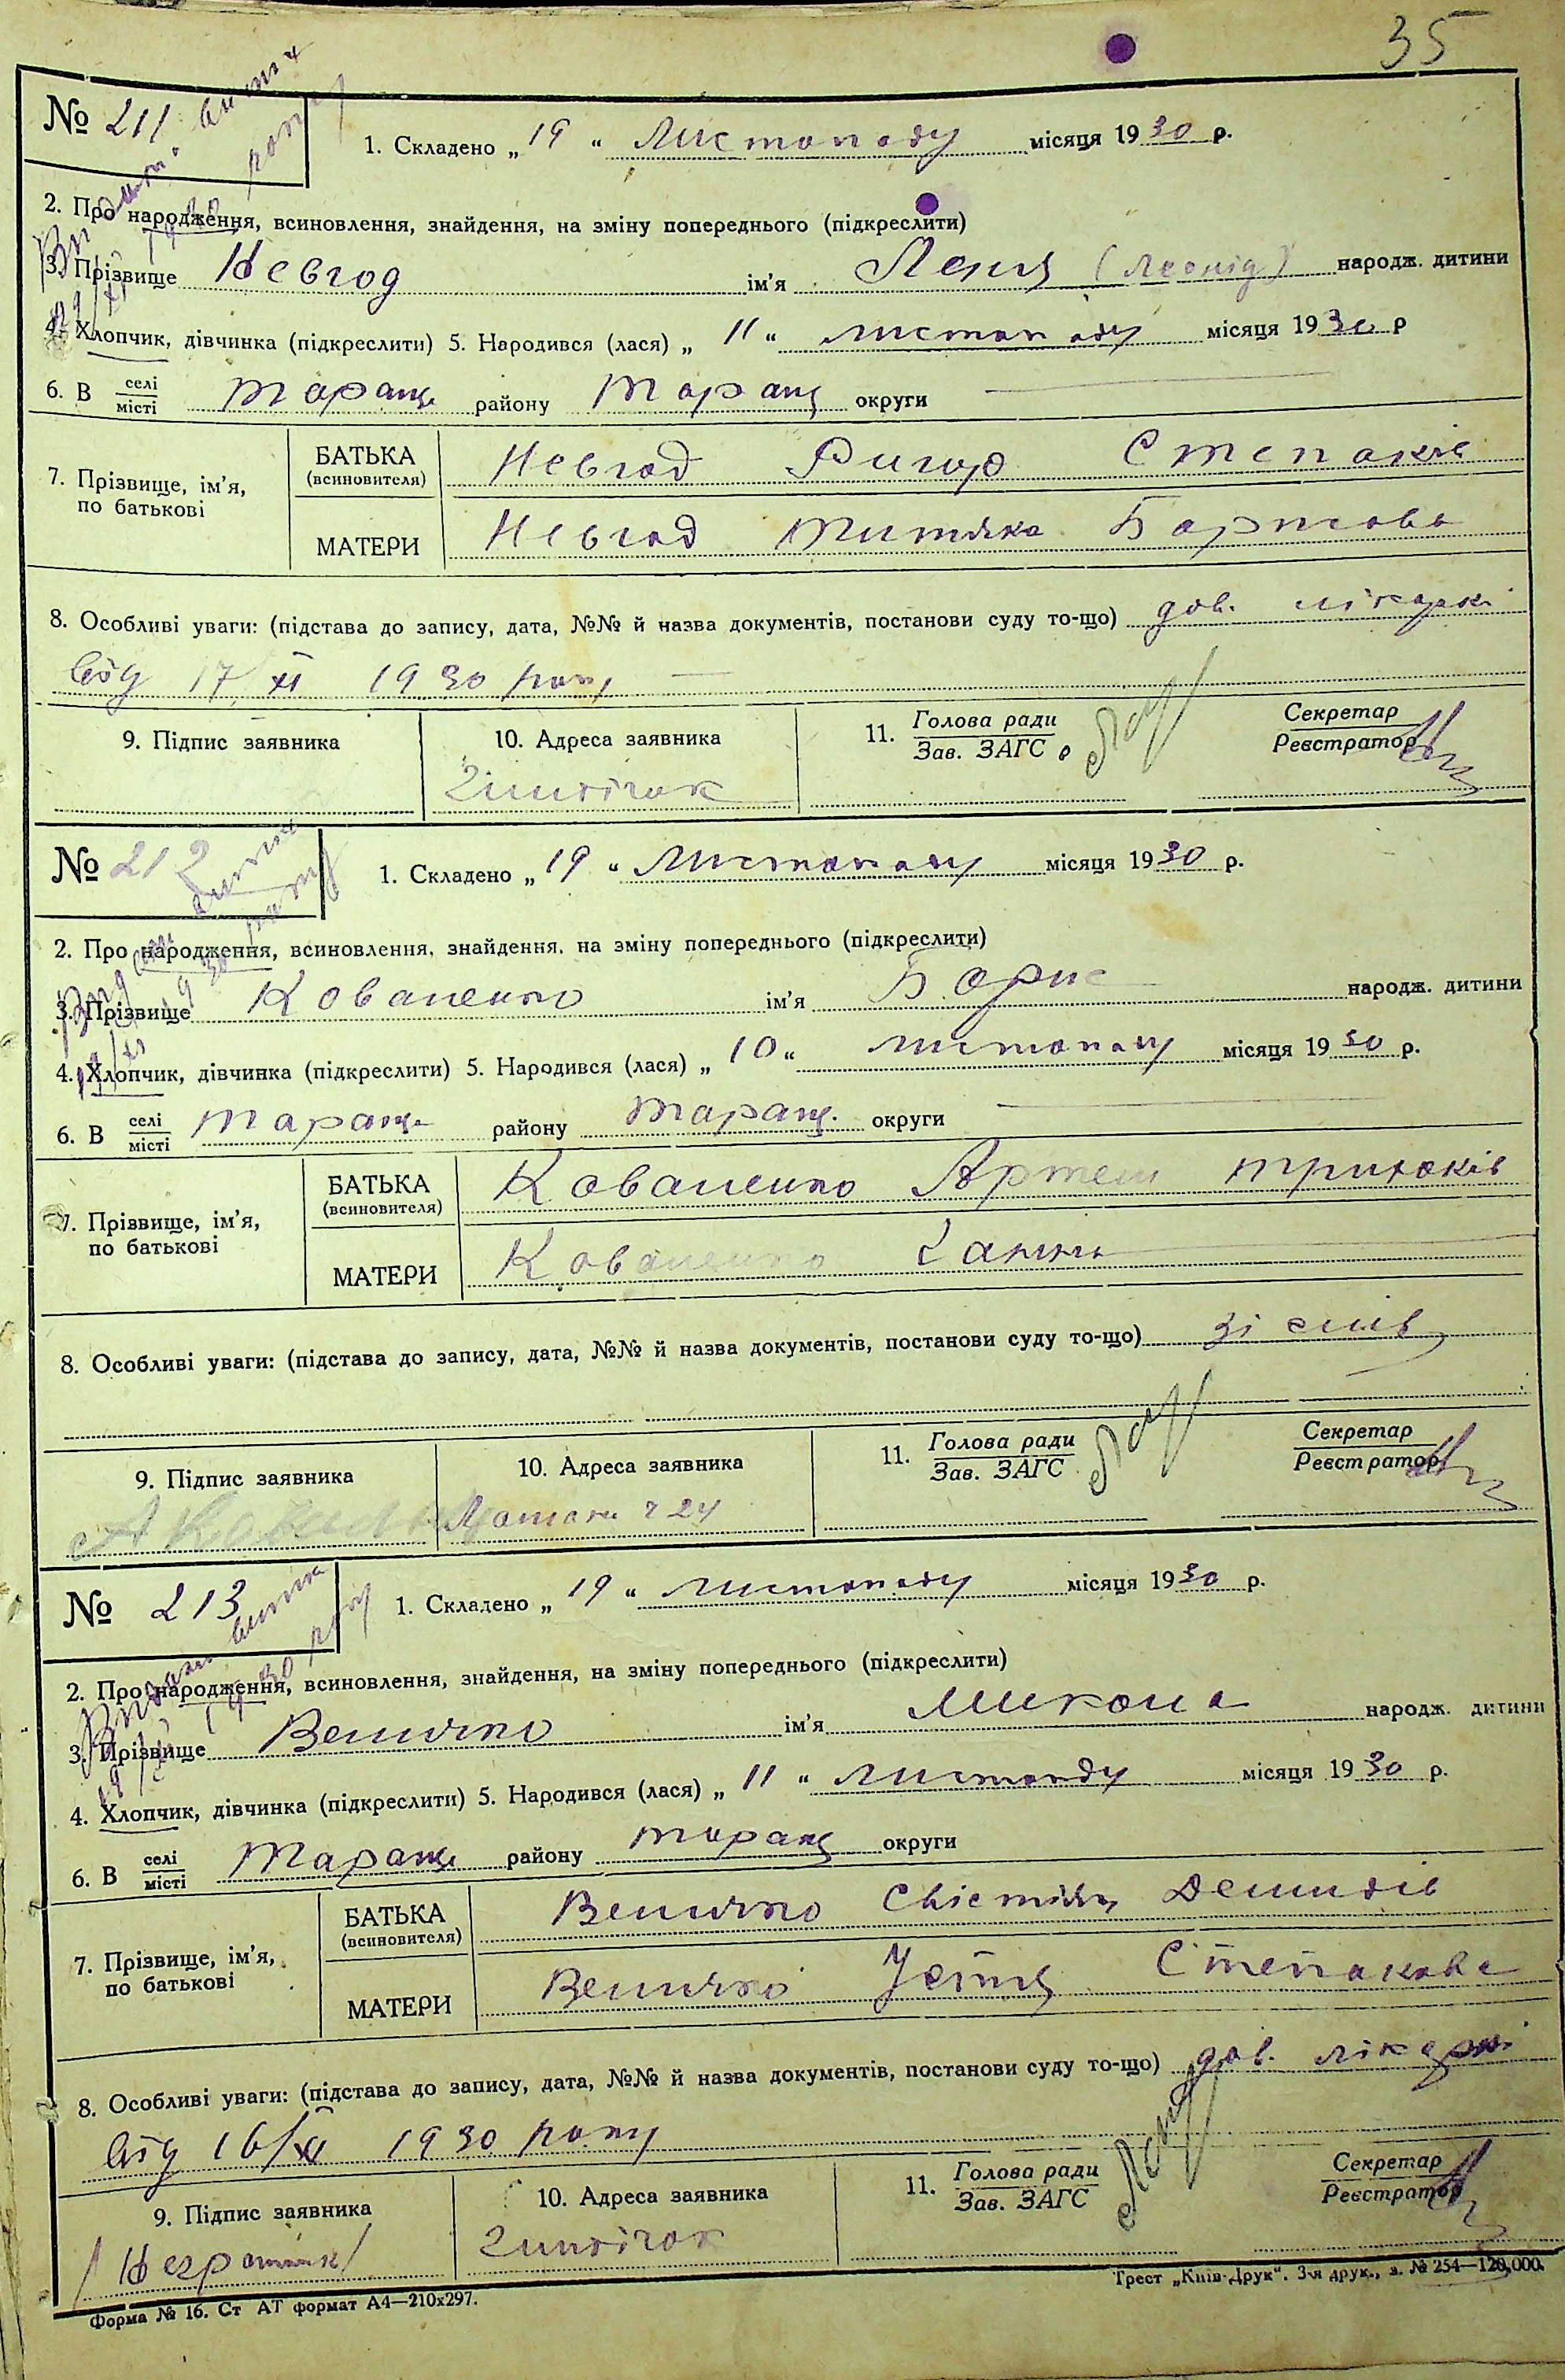 35
№ 211
1. Складено „19“ Листопаду місяця 1930 р.
2. Про народження, всиновлення, знайдення, на зміну попереднього (підкреслити)
3. Прізвище Невгод ім'я Леня (Леонід) народж. дитини
4. Хлопчик, дівчинка (підкреслити) 5. Народився (лася) „11“ листопаду місяця 1930 р
6. В селі місті Тараща району Таращ округи
7. Прізвище, ім'я, по батькові
БАТЬКА (всиновителя) Невгод Степанів
МАТЕРИ Невгод
8. Особливі уваги: (підстава до запису, дата, №№ й назва документів, постанови суду то-що) дов. лікарні
від 17 XI 1930 року
9. Підпис заявника 10. Адреса заявника 11. Голова ради Зав. ЗАГС Секретар Реєстратор
№ 212
1. Складено „19“ Листопаду місяця 1930 р.
2. Про народження, всиновлення, знайдення, на зміну попереднього (підкреслити)
3. Прізвище Коваленко ім'я Борис народж. дитини
4. Хлопчик, дівчинка (підкреслити) 5. Народився (лася) „10“ листопаду місяця 1930 р.
6. В селі місті Тараща району Таращ. округи
7. Прізвище, ім'я, по батькові
БАТЬКА (всиновителя) Коваленко Артем
МАТЕРИ Коваленко Ганна
8. Особливі уваги: (підстава до запису, дата, №№ й назва документів, постанови суду то-що) зі слів
9. Підпис заявника 10. Адреса заявника 11. Голова ради Зав. ЗАГС Секретар Реєстратор
24
№ 213
1. Складено „19“ листопаду місяця 1930 р.
2. Про народження, всиновлення, знайдення, на зміну попереднього (підкреслити)
3. Прізвище Величко ім'я Микола народж. дитини
4. Хлопчик, дівчинка (підкреслити) 5. Народився (лася) „11“ листопду місяця 1930 р.
6. В селі місті Тараща району Таращ округи
7. Прізвище, ім'я, по батькові
БАТЬКА (всиновителя) Величко Демидів
МАТЕРИ Величко Устя Степанова
8. Особливі уваги: (підстава до запису, дата, №№ й назва документів, постанови суду то-що) дов. лікарні
від 16/XI 1930 року
9. Підпис заявника 10. Адреса заявника 11. Голова ради Зав. ЗАГС Секретар Реєстратор
/Неграмотн/
Форма № 16. Ст АТ формат А4—210х297.
Трест „Київ-Друк“. 3-я друк., з. № 254—120,000.